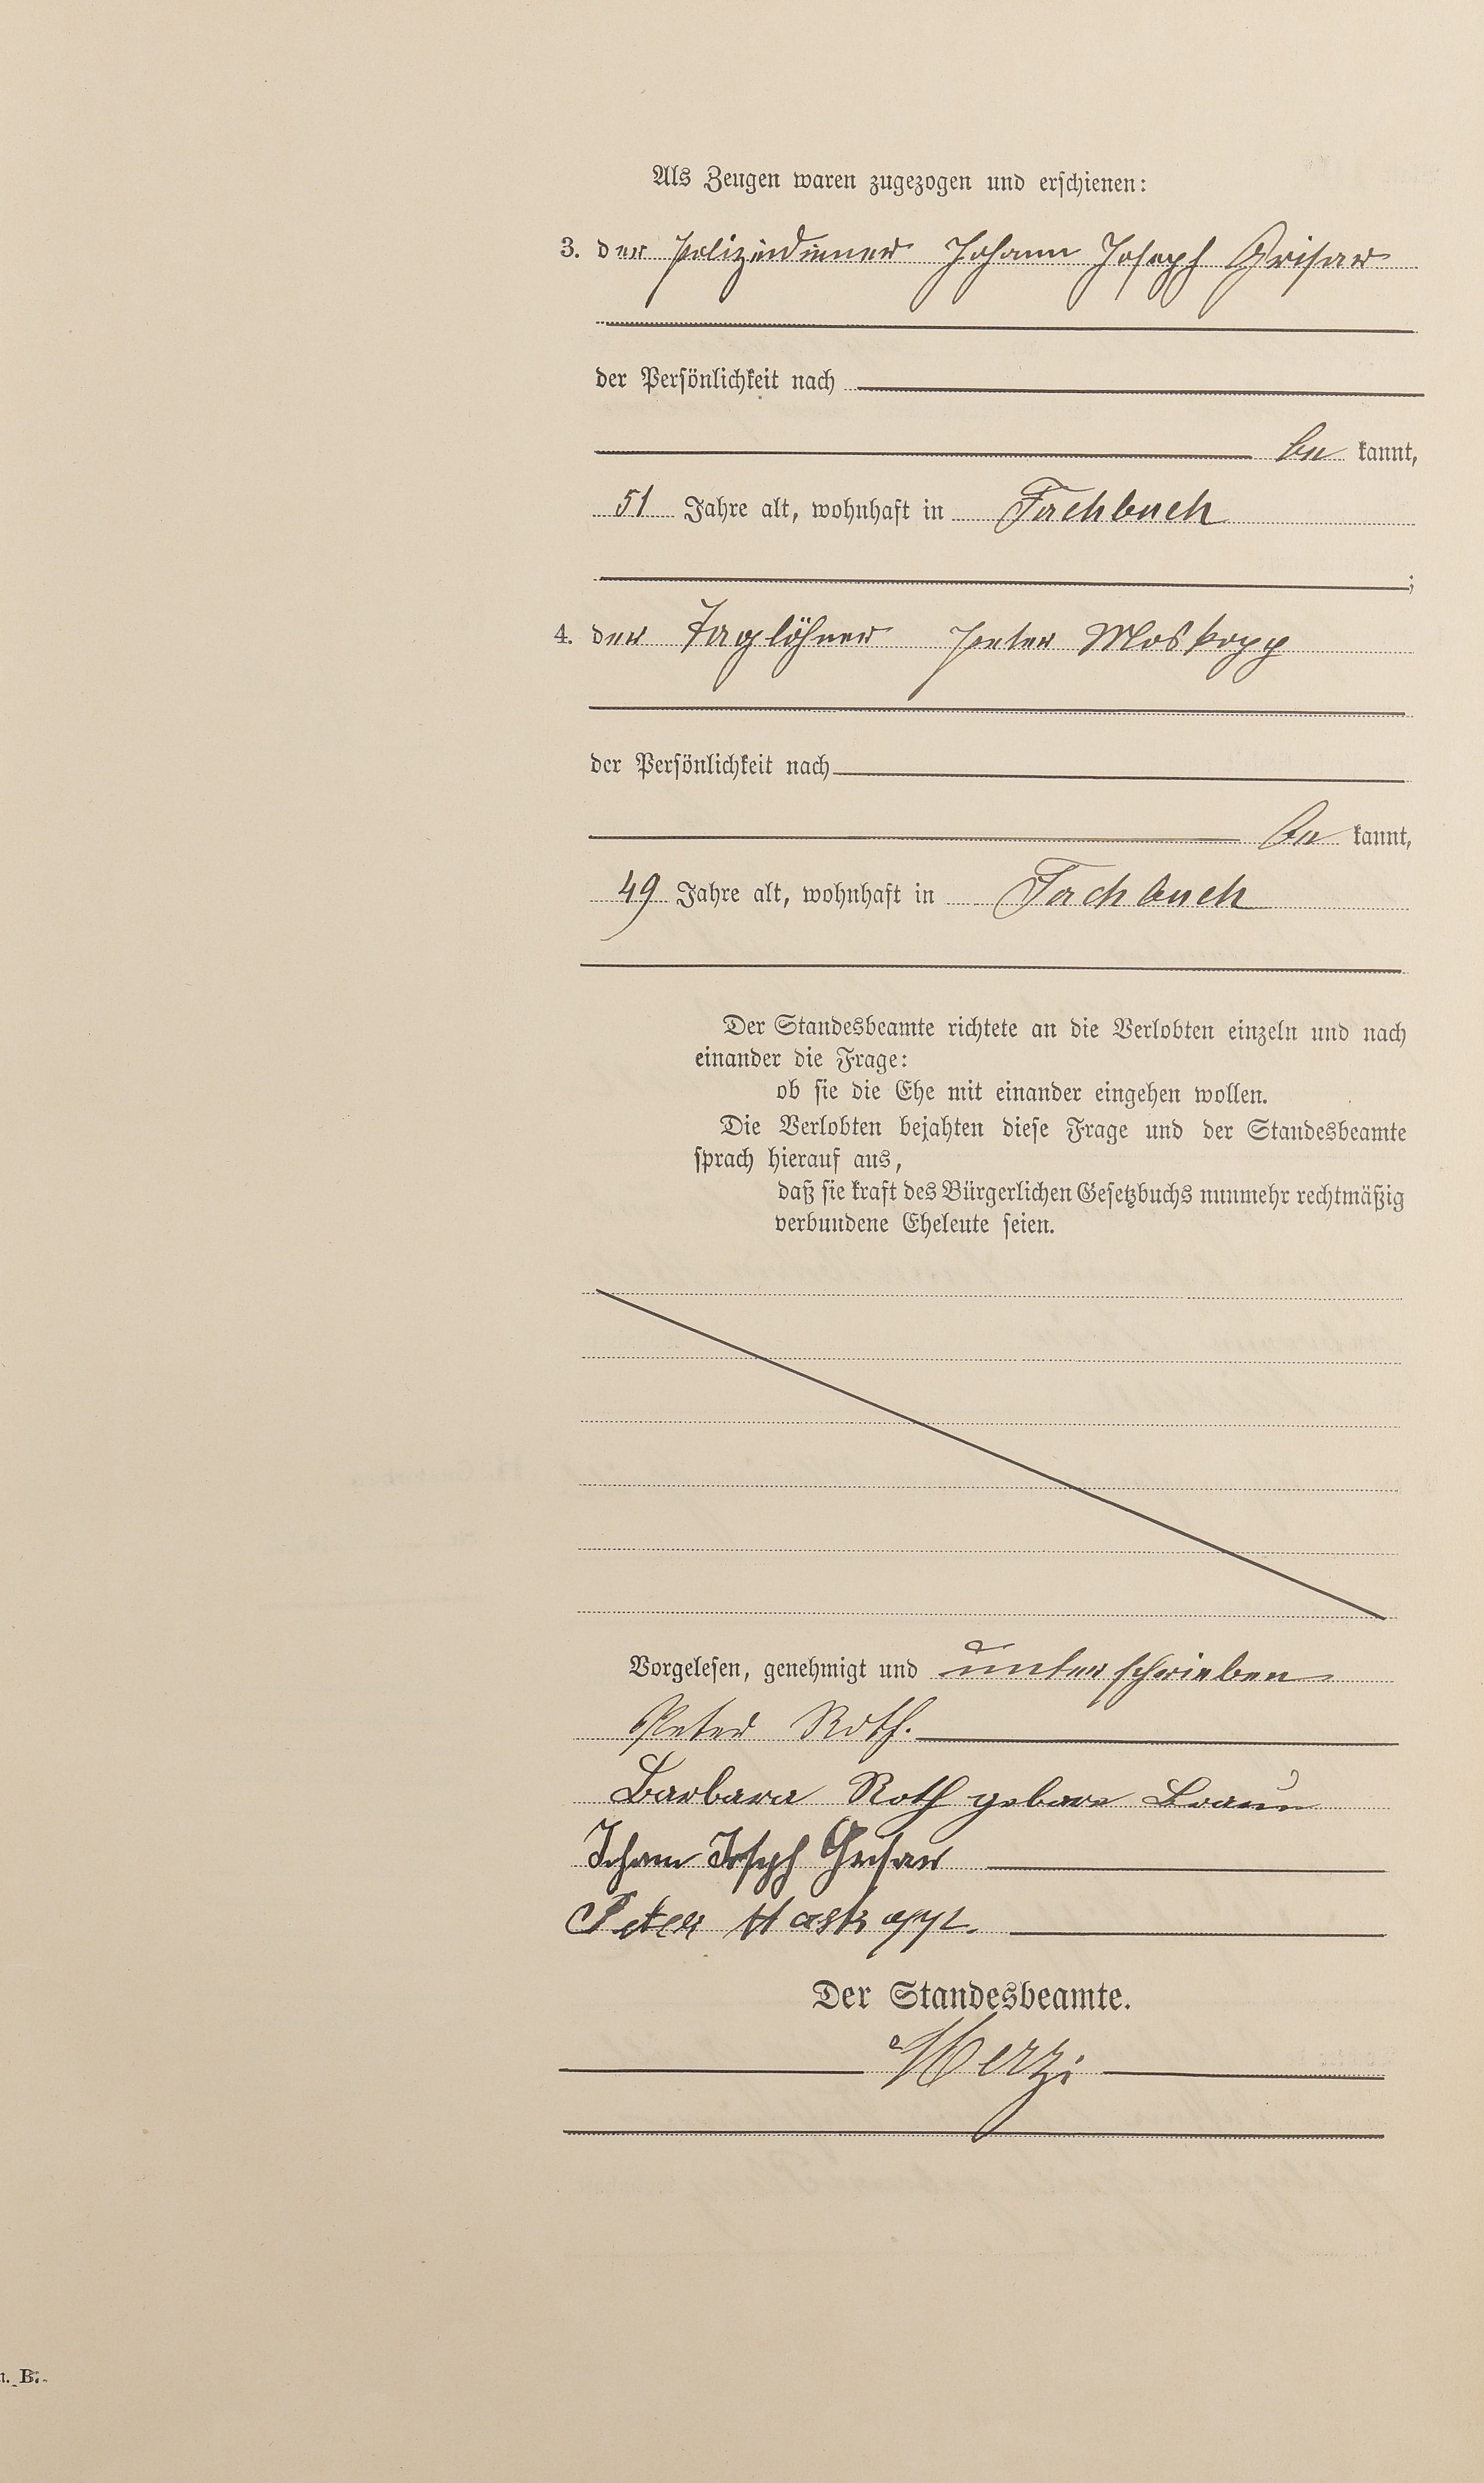 Als Zeugen waren zugezogen und erschienen:
3. der Polizeidiener Johann Joseph Grisar
der Persönlichkeit nach
be kannt,
51 Jahre alt, wohnhaft in Fachbach
;
4. der Taglöhner Peter Moskopp
der Persönlichkeit nach
be kannt,
49 Jahre alt, wohnhaft in Fachbach
Der Standesbeamte richtete an die Verlobten einzeln und nach
einander die Frage:
ob sie die Ehe mit einander eingehen wollen.
Die Verlobten bejahten diese Frage und der Standesbeamte
sprach hierauf aus,
daß sie kraft des Bürgerlichen Gesetzbuchs nunmehr rechtmäßig
verbundene Eheleute seien.
Vorgelesen, genehmigt und unterschrieben
Peter Roth.
Barbara Roth gebore Braun
Johann Joseph Grisar
Peter Moskopp.
Der Standesbeamte.
Merzi
B.